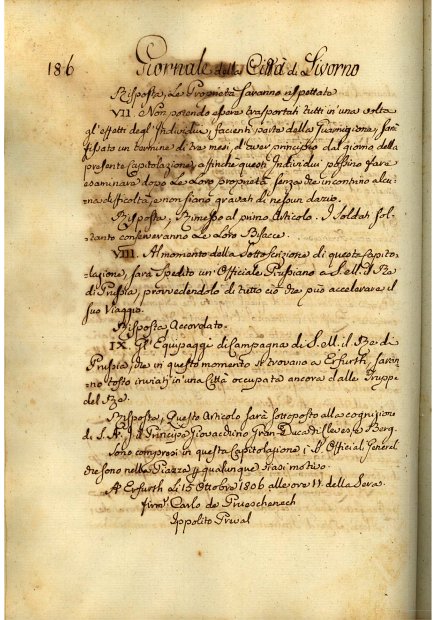 186 Giornale della Città di Livorno
Risposta, Le Proprietà saranno rispettate
VII. Non potendo essere trasportati tutti in una volta
gl'effetti degl'Individui, facienti parte della Guarnigione, sarà
fissato un termine di tre mesi, d'aver principio dal giorno della
presente Capitolazione, affinche questi Individui possino fare
esaminare dopo le Loro proprietà senza che incontrino alcu-
na difficoltà, e non siano gravati di nessun dazio.
Risposta, Rimesso al primo Articolo. I Soldati sol-
tanto conserveranno Le Loro Bisacce.
VIII. Al momento della Sottoscrizione di questa Capito-
lazione, sarà Spedito un'Officiale Prussiano a S. M. il Re
di Prussia, provvedendolo di tutto ciò che può accelerare il
suo Viaggio.
Risposta Accordato.
IX. Gl'Equipaggi di Campagna di S. M. il Re di
Prussia, che in questo momento si trovano a Erfurth, saran-
no tosto inviati in una Città occupata ancora dalle Truppe
del Re.
Risposta, Questo Articolo sarà sottoposto alla cognizione
di S. A. I. il Principe Giovacchino Gran-Duca di Cleves, e Berg.
Sono compresi in questa Capitolazione i S. Officiali Generali
che sono nella Piazza qualunque siasi motivo.
A Erfurth li 15 Ottobre 1806 alle ore 11 della Sera.
firm. Carlo de Prueschenech
Ippolito Preval